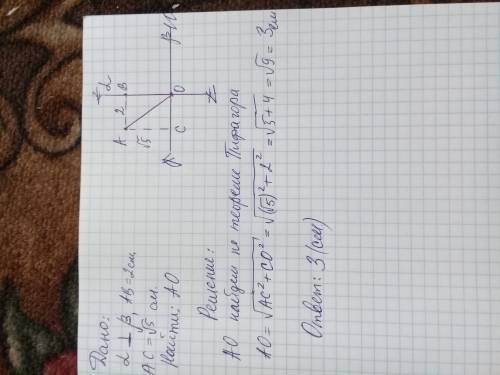 Дано:
α ⊥ β, AB = 2 см,
AC = √5 см.
Найти: AO
A
2
B
α
√5
C
O
Решение:
AO найдем по теореме Пифагора
AO = √AC² + CO² = √(√5)² + 2² = √5 + 4 = √9 = 3 см
Ответ: 3 (см)